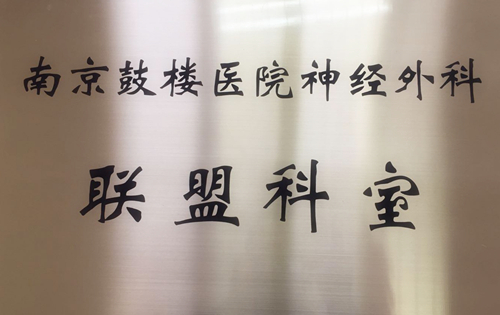 南京鼓楼医院神经外科
联盟科室